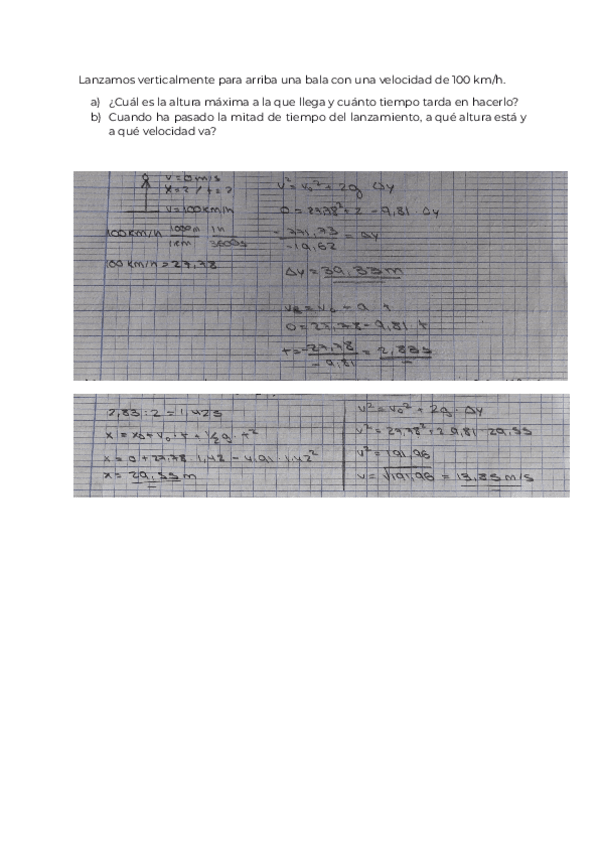 Lanzamos verticalmente para arriba una bala con una velocidad de 100 km/h.
a) ¿Cuál es la altura máxima a la que llega y cuánto tiempo tarda en hacerlo?
b) Cuando ha pasado la mitad de tiempo del lanzamiento, a qué altura está y
a qué velocidad va?
v=0m/s
x=? / t=?
v=100km/h
100km/h 1000m 1h
1km 3600s
100 km/h = 27,78
v² = v₀² + 2g Δy
0 = 27,78² + 2 - 9,81 Δy
-771,73 = Δy
-19,62
Δy = 39,33m
0 = 27,78 - 9,81 · t
t = -27,78 = 2,83s
-9,81
2,83 : 2 = 1,42s
x = x₀ + v₀ · t + 1/2 g · t²
x = 0 + 27,78 · 1,42 - 4,91 · 1,42²
x = 29,55 m
v² = v₀² + 2g · Δy
v² = 27,78² + 2 · 9,81 · 29,55
v² = 191,96
v = √191,96 = 13,85 m/s